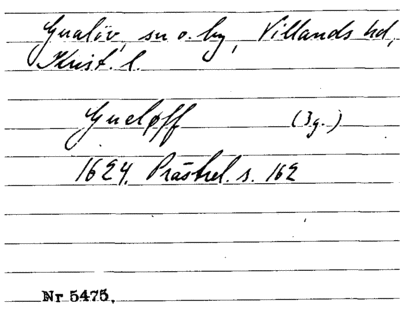 Gualöv, sn o. by, Villands hd,
Krist. l.
Gueløff (3g.)
1624. Prästrel. s. 162
Nr 5475.